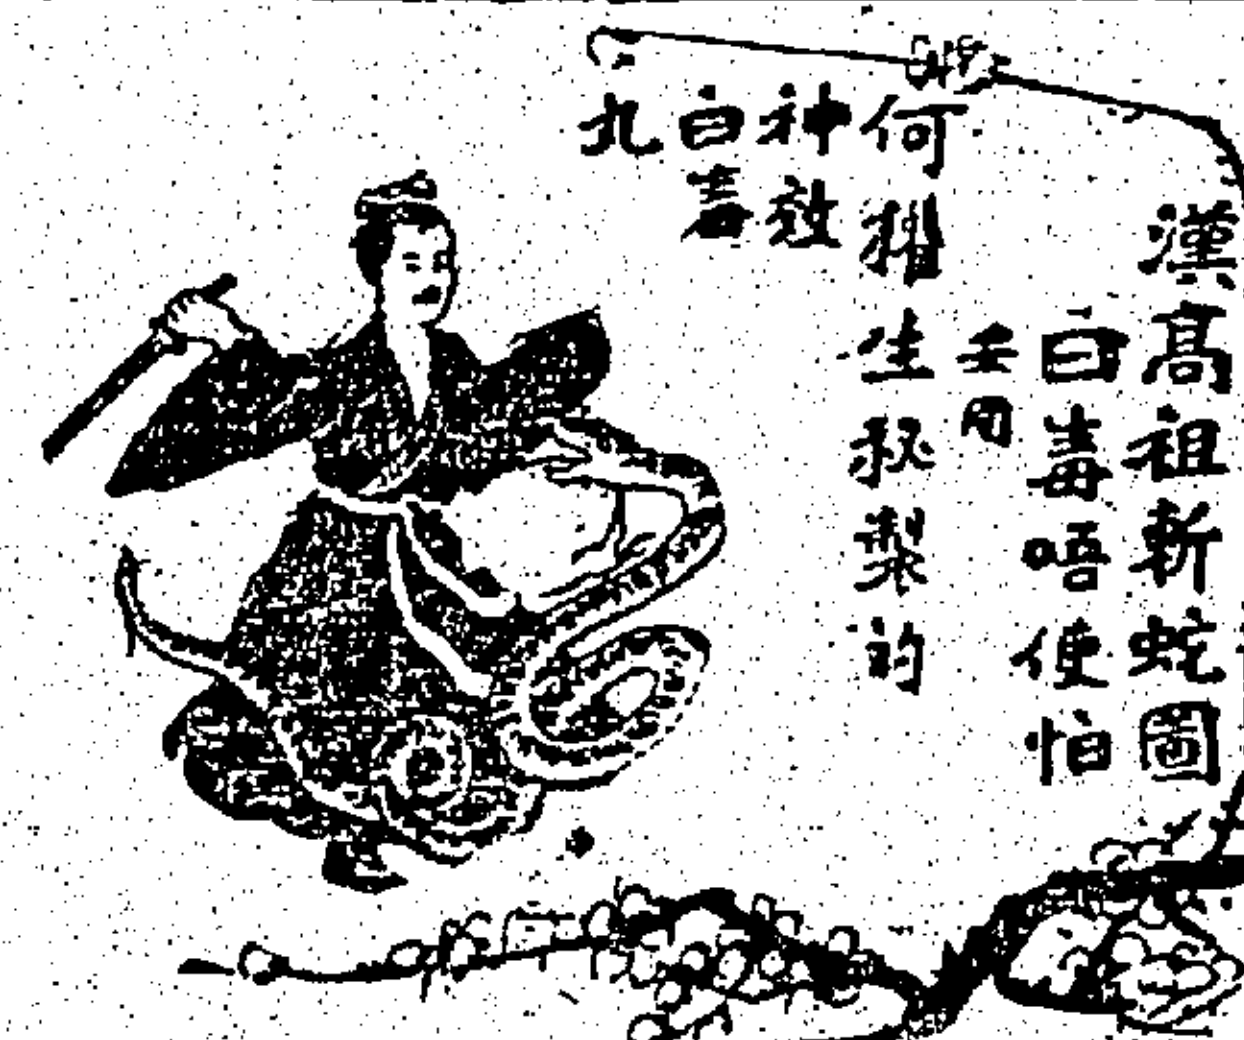 漢高祖斬蛇圖
白毒唔使怕
用
何生秘製的
神效
白毒
丸